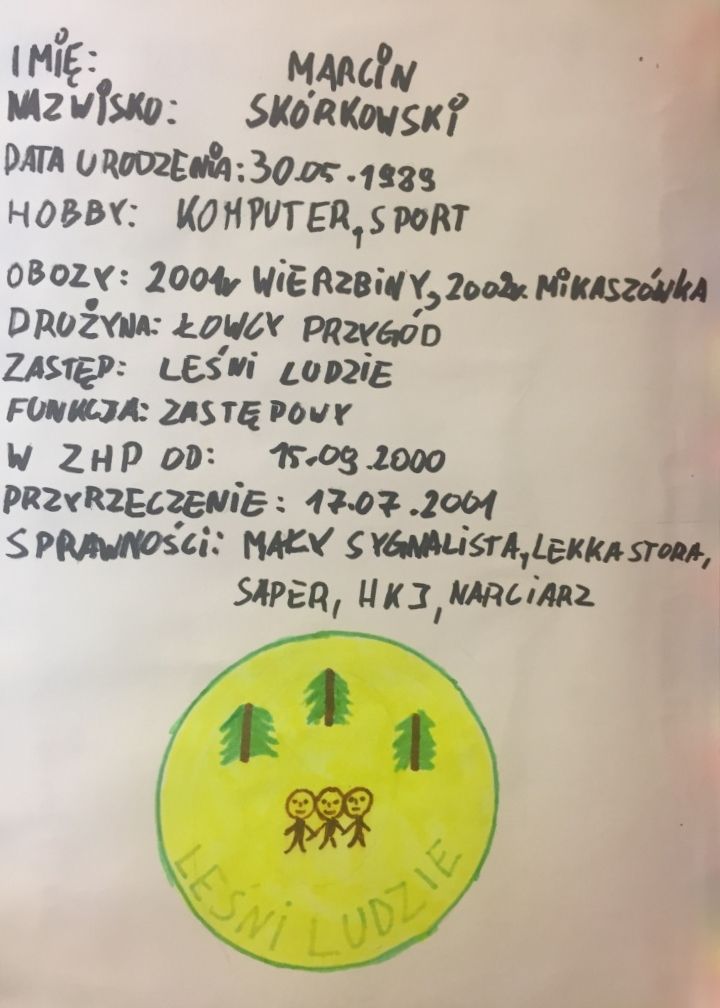 IMIĘ: MARCIN
NAZWISKO: SKÓRKOWSKI
DATA URODZENIA: 30.05.1989
HOBBY: KOMPUTER, SPORT
OBOZY: 2001r WIERZBINY, 2002r. MIKASZÓWKA
DRUŻYNA: ŁOWCY PRZYGÓD
ZASTĘP: LEŚNI LUDZIE
FUNKCJA: ZASTĘPOWY
W ZHP OD: 15.09.2000
PRZYRZECZENIE: 17.07.2001
SPRAWNOŚCI: MAŁY SYGNALISTA, LEKKA STORA,
SAPER, HKJ, NARCIARZ
LEŚNI LUDZIE